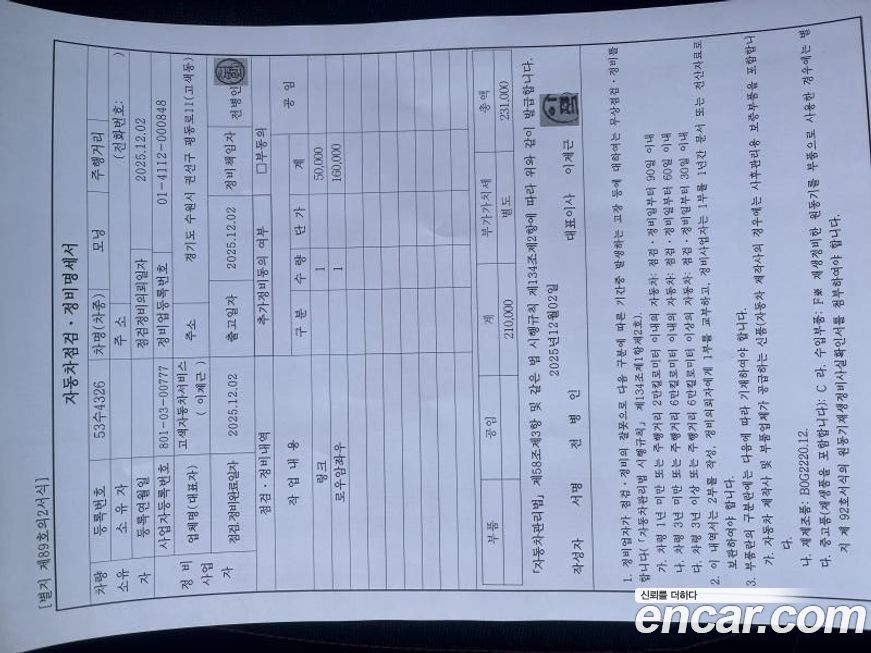 [별지 제89호의2서식]
자동차점검·정비명세서
차량 등록번호 53수4326 차명(차종) 모닝 주행거리
소유자 소유자 주소 (전화번호: )
등록연월일 점검정비의뢰일자 2025.12.02
정비사업자 사업자등록번호 801-03-00777 정비업등록번호 01-4112-000848
업체명(대표자) 고색자동차서비스 ( 이제근 ) 주소 경기도 수원시 권선구 평동로11(고색동)
점검.정비완료일자 2025.12.02 출고일자 2025.12.02 정비책임자 전병인
점검·정비내역 추가정비동의 여부 □부동의
작업내용 구분 수량 단가 계 공임
링크 1 50,000
로우암좌우 1 160,000
부품 공임 계 부가가치세 총액
210,000 별도 231,000
「자동차관리법」 제58조제3항 및 같은 법 시행규칙 제134조제2항에 따라 위와 같이 발급합니다.
2025년12월02일
작성자 서명 전병인 대표이사 이제근
1. 정비업자가 점검·정비의 잘못으로 다음 구분에 따른 기간중 발생하는 고장 등에 대하여는 무상점검·정비를
합니다(「자동차관리법 시행규칙」 제134조제1항제2호).
가. 차령 1년 미만 또는 주행거리 2만킬로미터 이내의 자동차: 점검·정비일부터 90일 이내
나. 차령 3년 미만 또는 주행거리 6만킬로미터 이내의 자동차: 점검·정비일부터 60일 이내
다. 차령 3년 이상 또는 주행거리 6만킬로미터 이상의 자동차: 점검·정비일부터 30일 이내
2. 이 내역서는 2부를 작성, 정비의뢰자에게 1부를 교부하고, 정비사업자는 1부를 1년간 문서 또는 전산자료로
보관하여야 합니다.
3 부품란의 구분란에는 다음에 따라 기재하여야 합니다.
가. 자동차 제작사 및 부품업체가 공급하는 신품(자동차 제작사의 경우에는 사후관리용 보증부품을 포함합니
다.
나. 재제조품: B0G2220.12.
다. 중고품(재생품을 포함합니다): C 라. 수입부품: F※ 재생정비한 원동기를 부품으로 사용한 경우에는 별
지 제 92호서식의 원동기재생정비사실확인서를 첨부하여야 합니다.
신뢰를 더하다
encar.com